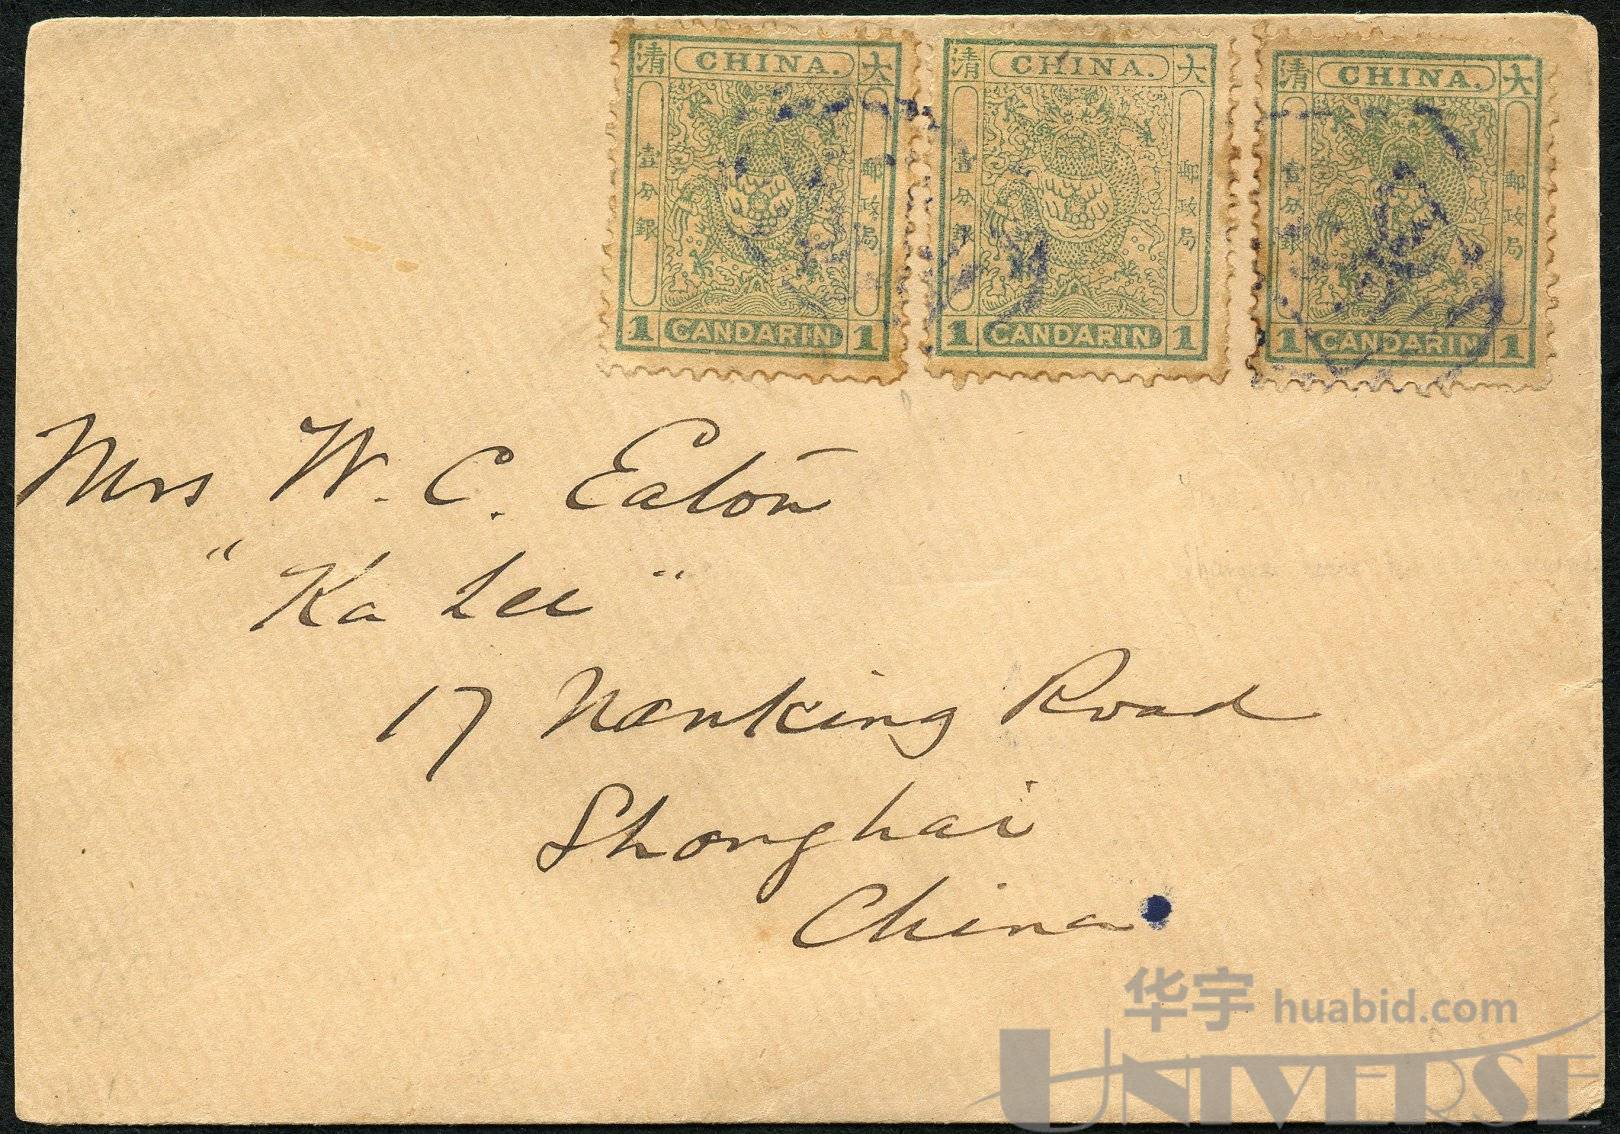 清 CHINA. 大
壹分銀 郵政局
1 CANDARIN 1
清 CHINA. 大
壹分銀 郵政局
1 CANDARIN 1
清 CHINA. 大
壹分銀 郵政局
1 CANDARIN 1
Mrs W. C. Eaton
"Ka Lee"
17 Nanking Road
Shanghai
China
华宇 huabid.com
UNIVERSE